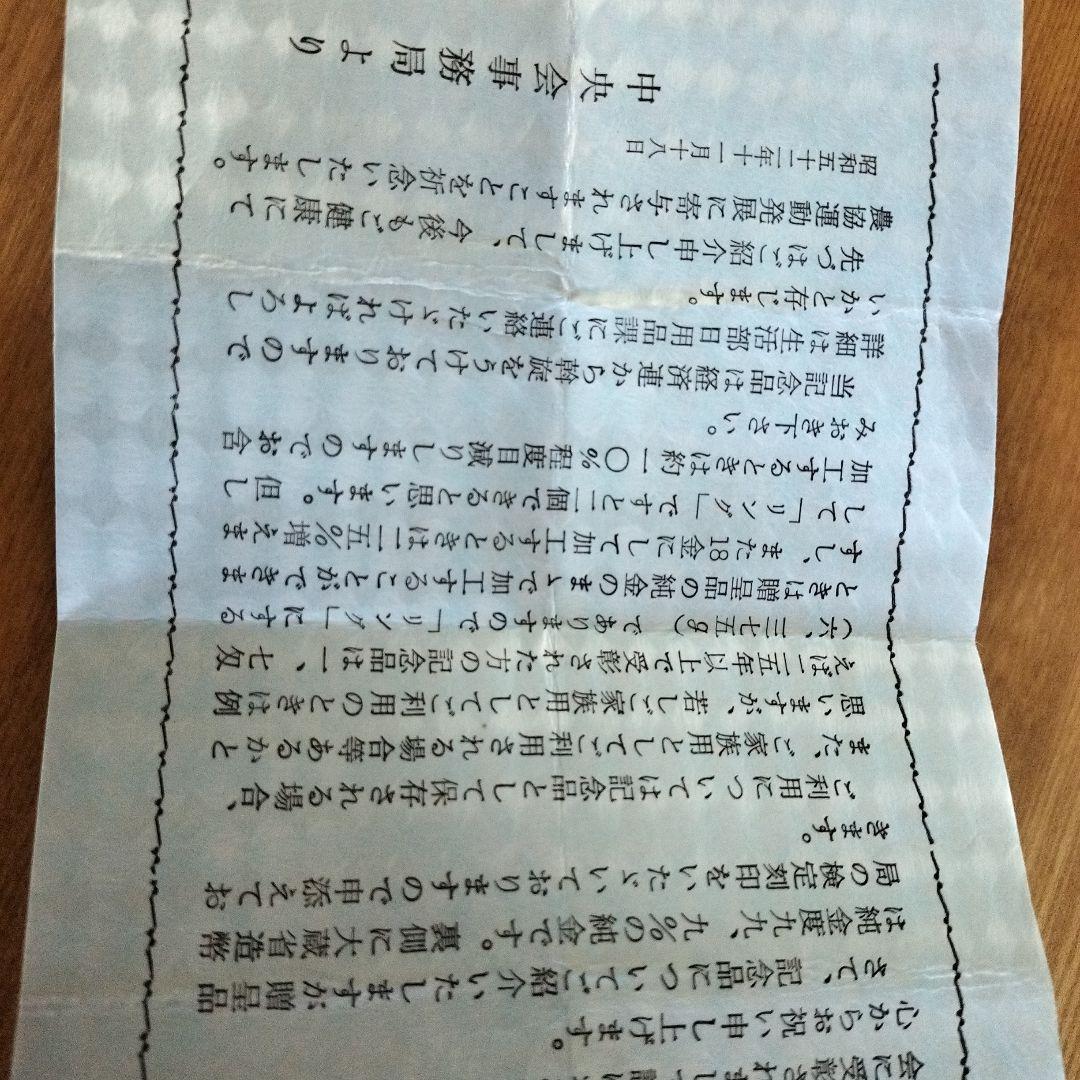 会に受賞されまして誠に
心からお祝い申し上げます。
さて、記念品についてご紹介いたしますが贈呈品
は純金度九九、九%の純金です。裏側に大蔵省造幣
局の検定刻印をいたゞいておりますので申添えてお
きます。
ご利用については記念品として保存される場合、
また、ご家族用としてご利用される場合等あるかと
思いますが、若しご家族用としてご利用のときは例
えば二五年以上で受彰された方の記念品は一、七匁
(六、三七五g)でありますので「リング」にする
ときは贈呈品の純金のまゝで加工することができま
すし、また18金にして加工するときは二五%増えま
して「リング」ですと二個できると思います。但し
加工するときは約一〇%程度目減りしますのでお含
みおき下さい。
当記念品は経済連から斡旋をうけておりますので
詳細は生活部日用品課にご連絡いたゞければよろし
いかと存じます。
先づはご紹介申し上げまして、今後もご健康にて
農協運動発展に寄与されますことを祈念いたします。
昭和五十二年十一月十八日
中央会事務局より